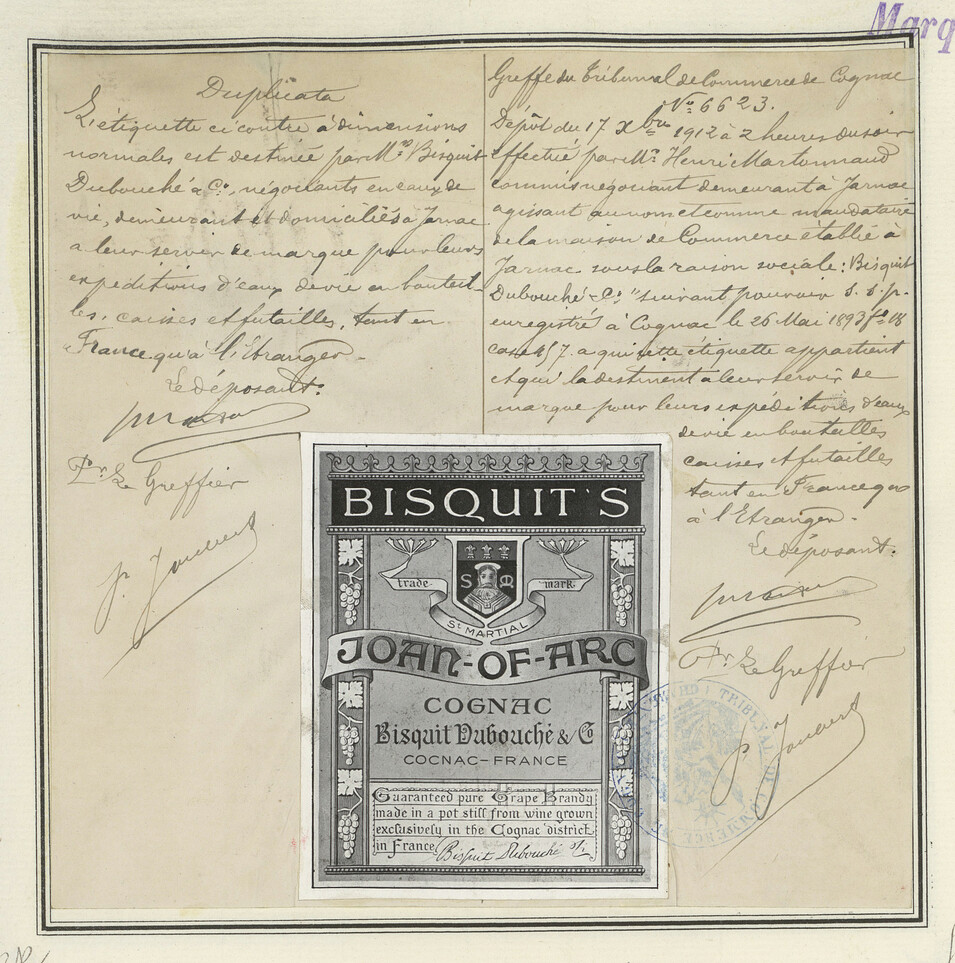 Marq
Duplicata
L'étiquette ci contre à dimensions
normales est destinée par Mrs Bisquit
Dubouché & Co, négociants en eaux de
vie, demeurant et domiciliés à Jarnac
a leur servir de marque pour leurs
expéditions d'eaux de vie en bouteil-
les, caisses et futailles, tant en
France qu'à l'Etranger.
Le déposant:
Pr Le Greffier
P. Joubert
Greffe du Tribunal de Commerce de Cognac
No 6623.
Dépôt du 17 Xbre 1912 à 2 heures du soir
effectué par Mr Henri Martonnaud
commis négociant demeurant à Jarnac
agissant au nom et comme mandataire
de la maison de Commerce établie à
Jarnac sous la raison sociale: Bisquit
Dubouché & Co "suivant pouvoir s. s. p.
enregistré à Cognac le 26 Mai 1893 fo 18
case 457. a qui cette étiquette appartient
et qui la destinent à leur servir de
marque pour leurs expéditions d'eaux
de vie en bouteilles
caisses et futailles
tant en France qu'
à l'Etranger.
Le déposant:
Pr Le Greffier
P. Joubert
BISQUIT'S
trade mark
S M
St MARTIAL
JOAN-OF-ARC
COGNAC
Bisquit Dubouché & Co
COCNAC-FRANCE
Guaranteed pure Grape Brandy
made in a pot still from wine grown
exclusively in the Cognac district
in France. Bisquit Dubouché &
TRIBUNAL DE COMMERCE DE